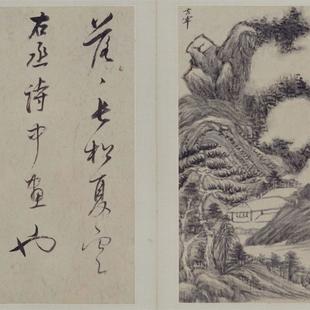 玄宰
落〻長松夏寒
右丞詩中畫也